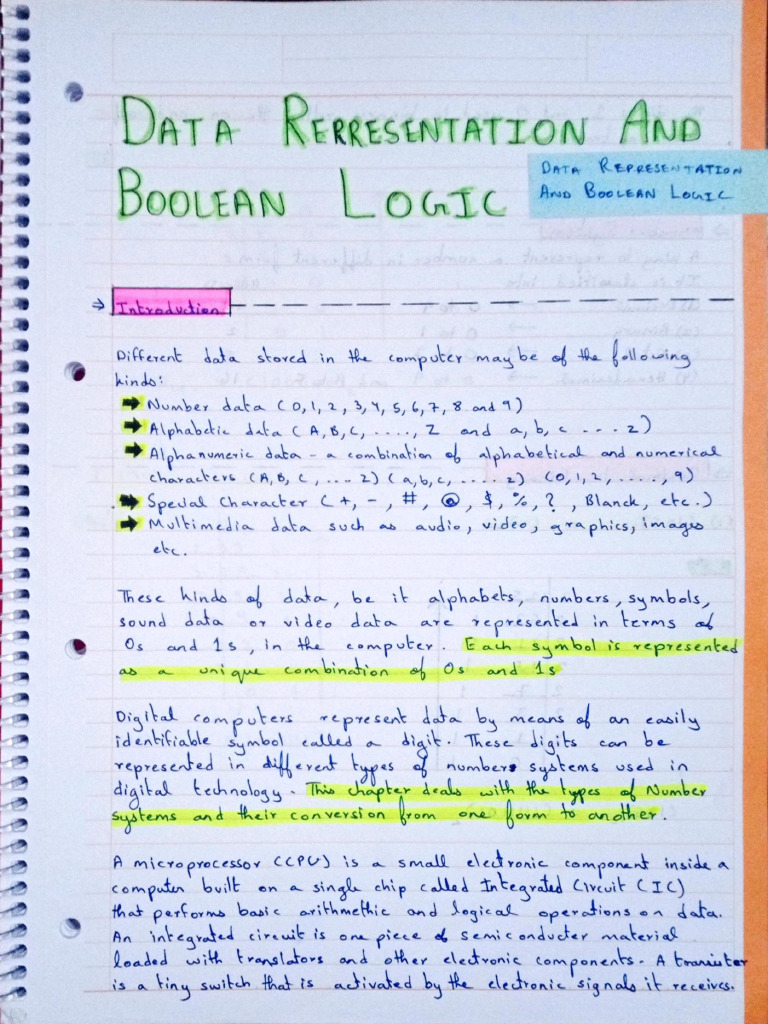 DATA RERRESENTATION AND
BOOLEAN LOGIC
DATA REPRESENTATION
AND BOOLEAN LOGIC
⇒ Introduction
Different data stored in the computer may be of the following
kinds:
➡ Number data (0,1,2,3,4,5,6,7,8 and 9)
➡ Alphabetic data (A,B,C,...., Z and a,b,c ... z)
➡ Alphanumeric data - a combination of alphabetical and numerical
characters (A,B,C,....Z) (a,b,c,....z) (0,1,2,....,9)
➡ Special Character (+, -, #, @, $, %, ?, Blanck, etc.)
➡ Multimedia data such as audio, video, graphics, images
etc.
These kinds of data, be it alphabets, numbers, symbols,
sound data or video data are represented in terms of
0s and 1s, in the computer. Each symbol is represented
as a unique combination of 0s and 1s
Digital computers represent data by means of an easily
identifiable symbol called a digit. These digits can be
represented in different types of numbers systems used in
digital technology. This chapter deals with the types of Number
systems and their conversion from one form to another.
A microprocessor (CPU) is a small electronic component inside a
computer built on a single chip called Integrated Circuit (IC)
that performs basic arithmethic and logical operations on data.
An integrated circuit is one piece of semiconducter material
loaded with translators and other electronic components. A transister
is a tiny switch that is activated by the electronic signals it receives.